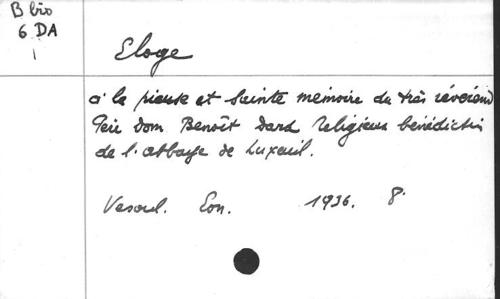 B bio
6 DA
1
Eloge
à la pieuse et sainte mémoire du très révérend
Père Dom Benoît Dard religieux bénédictin
de l'abbaye de Luxeuil.
Vesoul. Eon. 1936. 8°